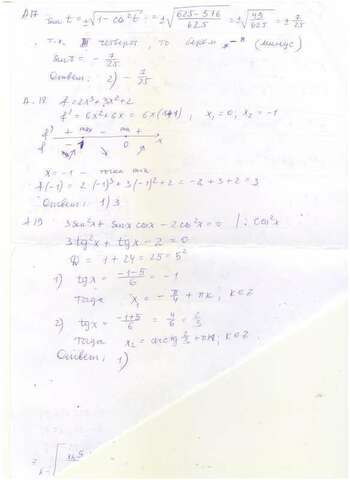 A17
sin t = ±√1-cos²t = ±√(625-576)/625 = ±√49/625 = ±7/25
т.к. III четверть, то берём "-" (минус)
sin t = -7/25
Ответ: 2) -7/25
A.18 f = 2x³+3x²+2
f' = 6x²+6x = 6x(x+1) , x₁ = 0; x₂ = -1
f' + max - min +
f -1 0 x
x = -1 - точка max
f(-1) = 2(-1)³+3(-1)²+2 = -2+3+2 = 3
Ответ: 1) 3
A19 3sin²x + sinx cosx - 2cos²x = 0 |: cos²x
3tg²x + tgx - 2 = 0
D = 1+24 = 25 = 5²
1) tgx = (-1-5)/6 = -1
тогда x₁ = -π/4 + πк; к∈Z
2) tgx = (-1+5)/6 = 4/6 = 2/3
тогда x₂ = arctg 2/3 + πк; к∈Z
Ответ: 1)